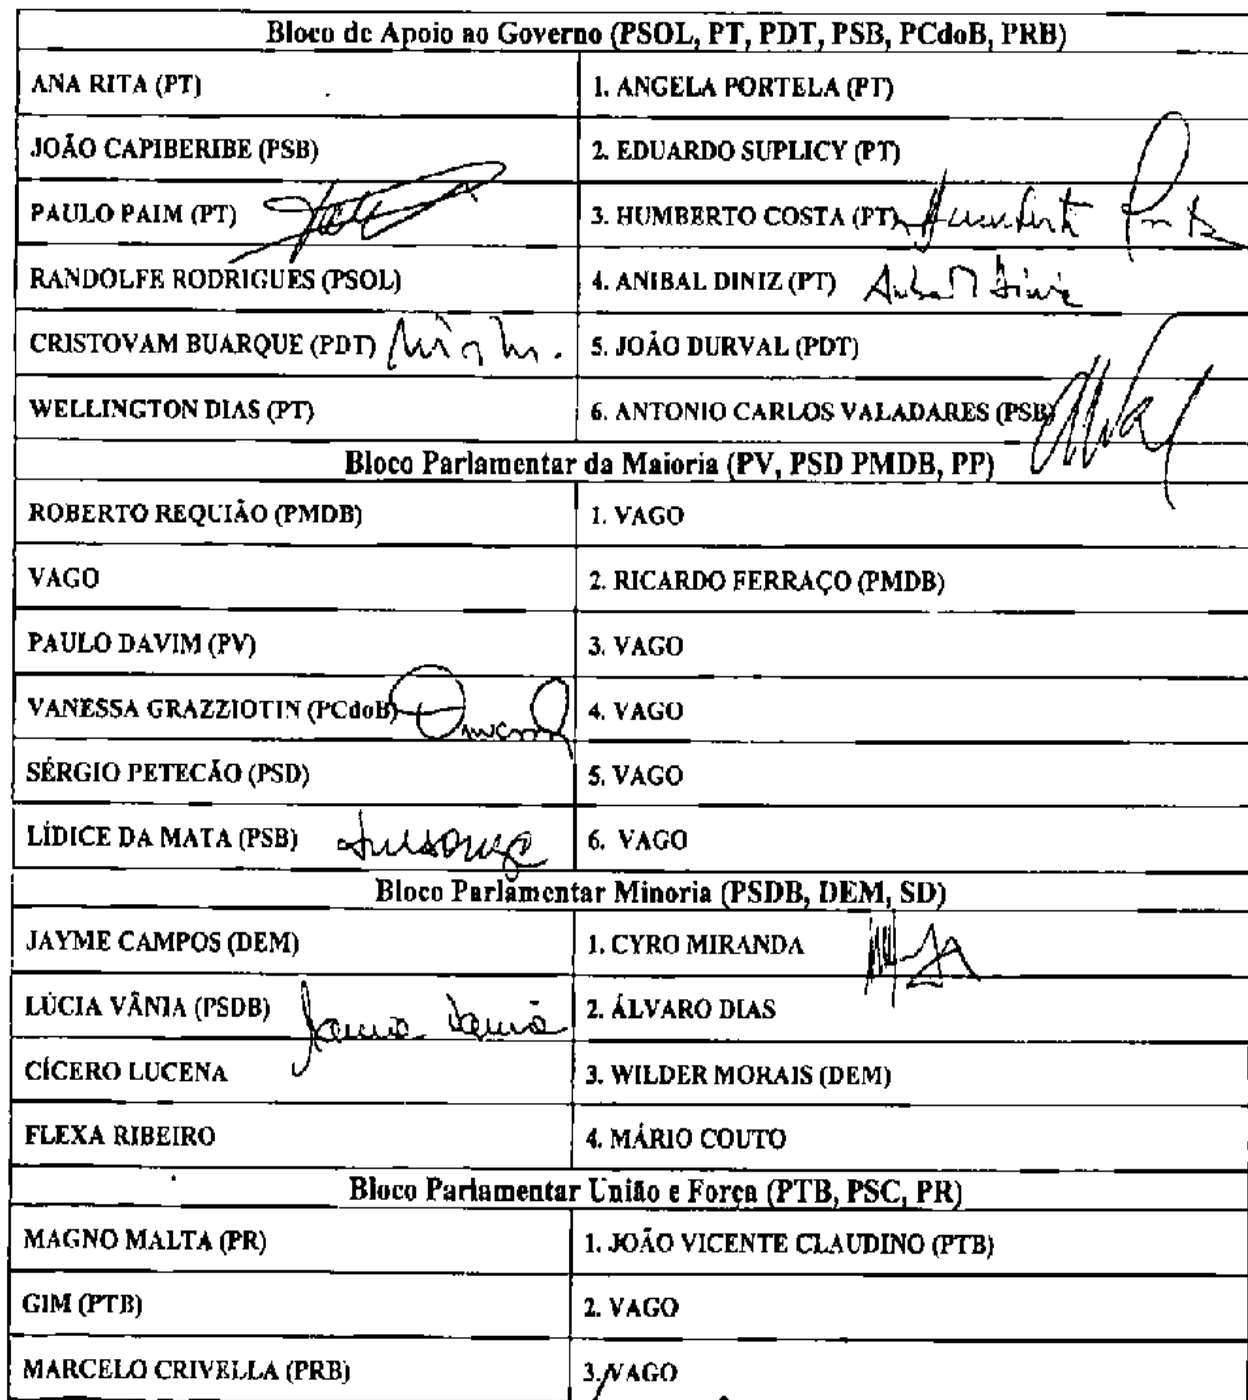 Bloco de Apoio ao Governo (PSOL, PT, PDT, PSB, PCdoB, PRB)
ANA RITA (PT) 1. ANGELA PORTELA (PT)
JOÃO CAPIBERIBE (PSB) 2. EDUARDO SUPLICY (PT)
PAULO PAIM (PT) 3. HUMBERTO COSTA (PT) Humberto Costa
RANDOLFE RODRIGUES (PSOL) 4. ANIBAL DINIZ (PT) Anibal Diniz
CRISTOVAM BUARQUE (PDT) 5. JOÃO DURVAL (PDT)
WELLINGTON DIAS (PT) 6. ANTONIO CARLOS VALADARES (PSB)
Bloco Parlamentar da Maioria (PV, PSD PMDB, PP)
ROBERTO REQUIÃO (PMDB) 1. VAGO
VAGO 2. RICARDO FERRAÇO (PMDB)
PAULO DAVIM (PV) 3. VAGO
VANESSA GRAZZIOTIN (PCdoB) 4. VAGO
SÉRGIO PETECÃO (PSD) 5. VAGO
LÍDICE DA MATA (PSB) 6. VAGO
Bloco Parlamentar Minoria (PSDB, DEM, SD)
JAYME CAMPOS (DEM) 1. CYRO MIRANDA
LÚCIA VÂNIA (PSDB) 2. ÁLVARO DIAS
CÍCERO LUCENA 3. WILDER MORAIS (DEM)
FLEXA RIBEIRO 4. MÁRIO COUTO
Bloco Parlamentar União e Força (PTB, PSC, PR)
MAGNO MALTA (PR) 1. JOÃO VICENTE CLAUDINO (PTB)
GIM (PTB) 2. VAGO
MARCELO CRIVELLA (PRB) 3. VAGO